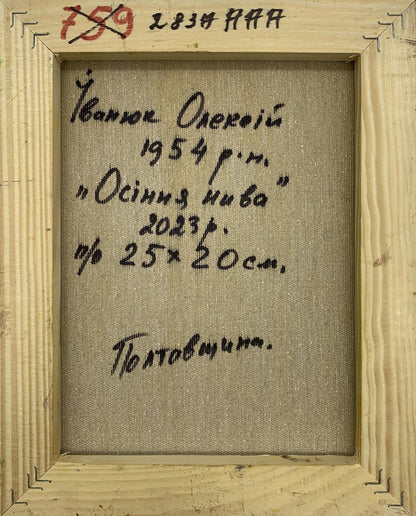 759 2837 AAA
Іванюк Олексій
1954 р.н.
„Осіння нива"
2023р.
п/о 25×20см.
Полтавщина.